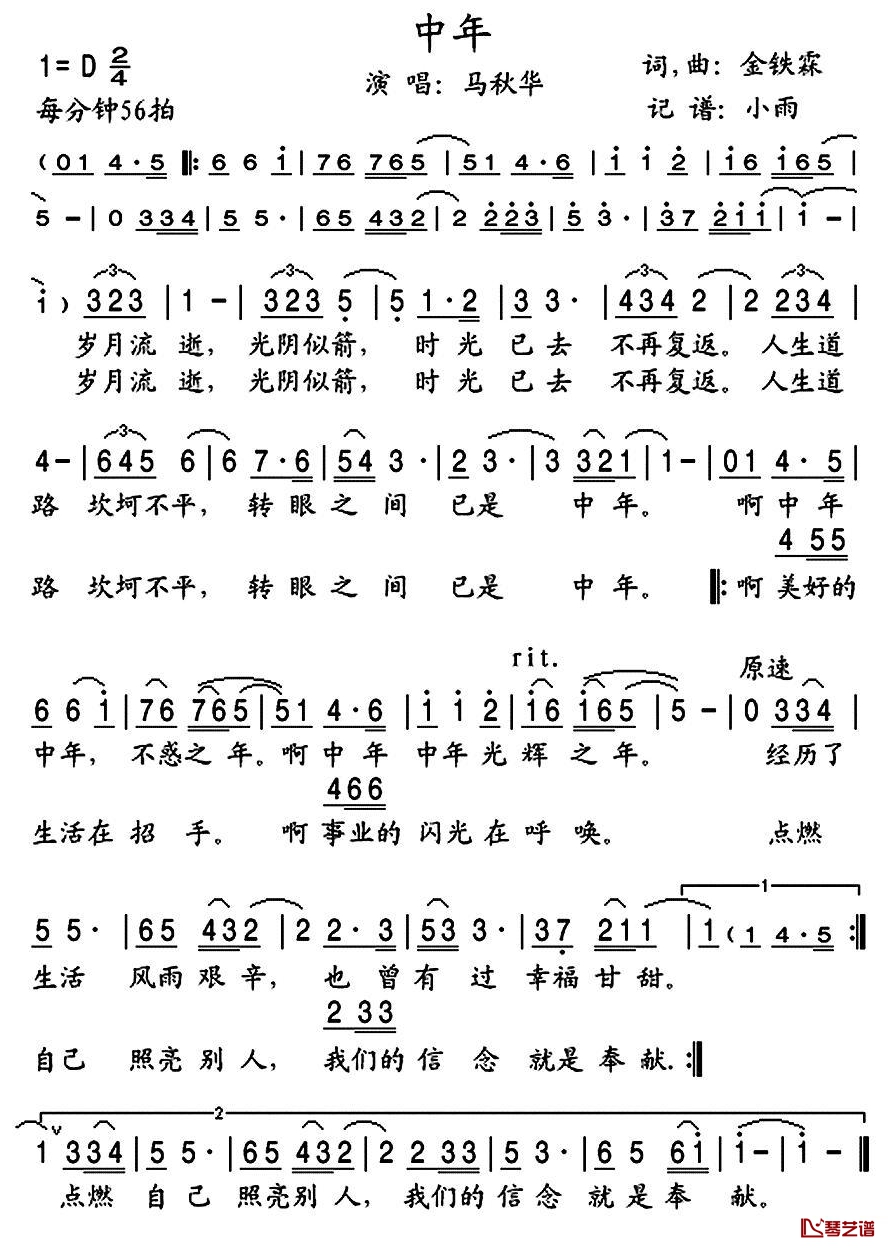 中年
1= D 2/4
演 唱：马秋华
词,曲：金铁霖
每分钟56拍
记 谱：小雨
( 01 4·5 ‖: 6 6 i | 76 765 | 51 4·6 | i i 2 | i6 i65 |
5 - | 0 334 | 5 5· | 65 432 | 2 223 | 5 3· | 37 2ii | i - |
i ) 323 | 1 - | 323 5 | 5 1·2 | 3 3· | 434 2 | 2 234 |
岁月流 逝， 光阴似箭， 时 光 已去 不再复返。 人生道
岁月流 逝， 光阴似箭， 时 光 已去 不再复返。 人生道
4 - | 645 6 | 6 7·6 | 54 3· | 2 3· | 3 321 | 1 - | 01 4·5 |
路 坎坷不平， 转 眼 之 间 已是 中 年。 啊 中 年
4 55
路 坎坷不平， 转 眼 之 间 已是 中 年。 ‖: 啊 美好的
rit. 原速
6 6 i | 76 765 | 51 4·6 | i i 2 | i6 i65 | 5 - | 0 334 |
中年， 不惑之 年。啊 中 年 中年 光 辉 之 年。 经历了
466
生活在 招 手。 啊 事业的 闪光 在 呼 唤。 点燃
1
5 5· | 65 432 | 2 2·3 | 53 3· | 37 211 | 1 ( 1 4·5 :‖
生活 风雨艰 辛， 也 曾 有 过 幸福 甘 甜。
2 33
自己 照亮 别 人， 我们的 信 念 就是 奉 献. :‖
2
1 ∨ 334 | 5 5· | 65 432 | 2 2 33 | 5 3· | 6 5 6i | i - | i - ‖
点燃 自 己 照亮别 人， 我 们的 信 念 就 是 奉 献。
琴艺谱